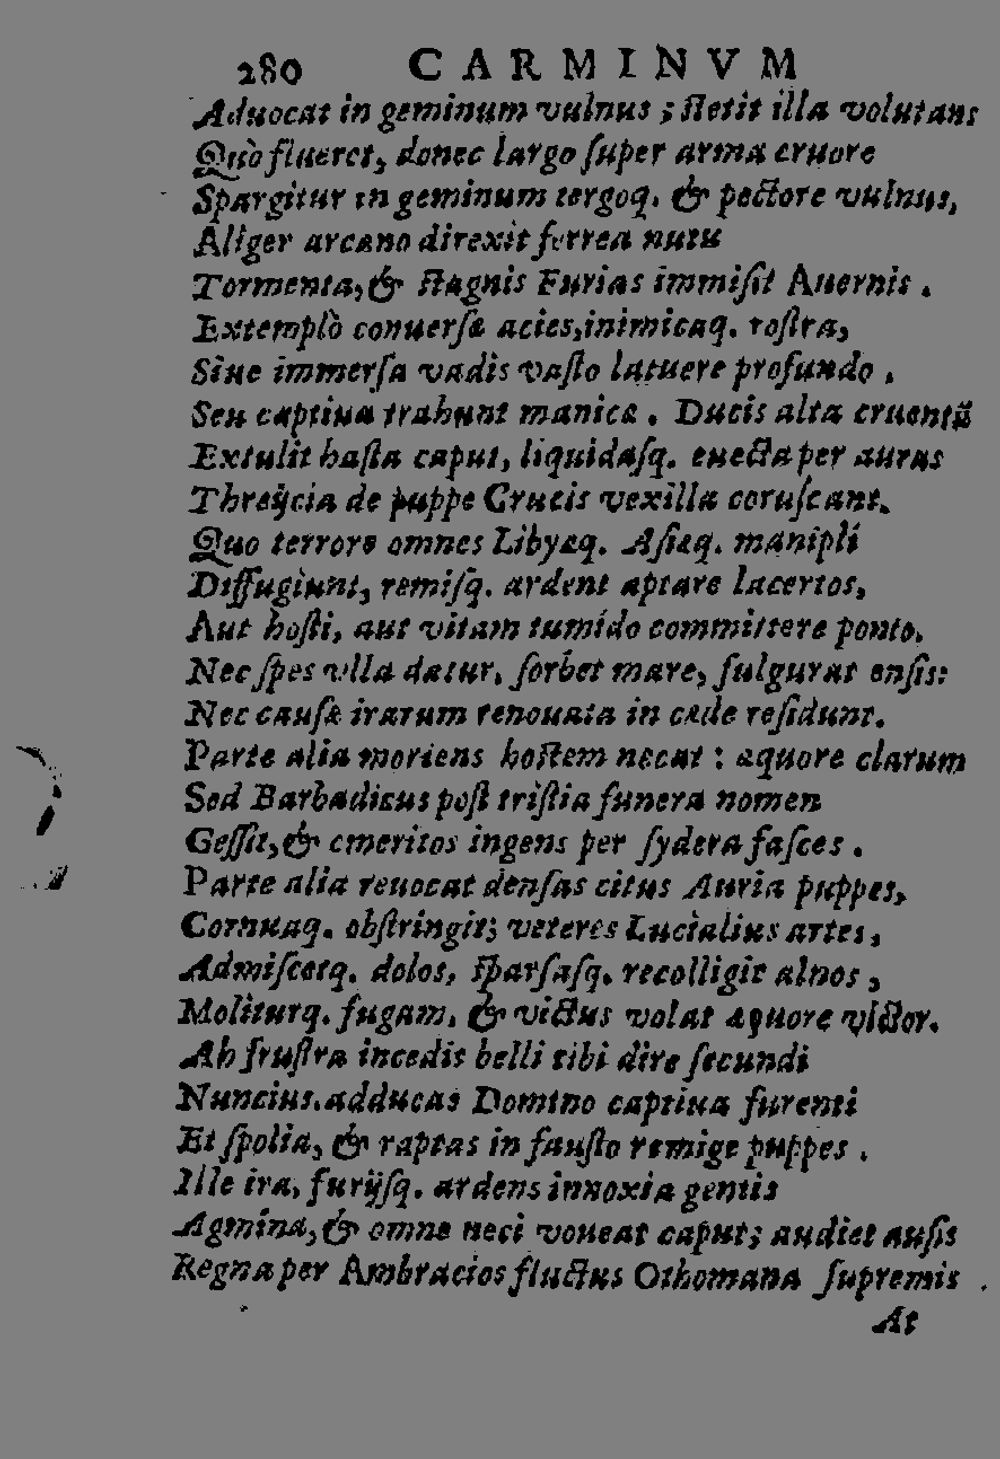 280 CARMINVM
Aduocat in geminum vulnus; stetit illa volutans
Quò flueret, donec largo super arma cruore
Spargitur in geminum tergoq. & pectore vulnus,
Aliger arcano direxit ferrea nutu
Tormenta, & stagnis Furias immisit Auernis.
Extemplò conuersæ acies, inimicaq. rostra,
Siue immersa vadis vasto latuere profundo,
Seu captiua trahunt manicæ. Ducis alta cruentũ
Extulit hasta caput, liquidasq. euecta per auras
Threijcia de puppe Crucis vexilla coruscant.
Quo terrore omnes Libyæq. Asiæq. manipli
Diffugiunt, remisq. ardent aptare lacertos,
Aut hosti, aut vitam tumido committere ponto.
Nec spes vlla datur, sorbet mare, fulgurat ensis:
Nec causæ irarum renouata in cæde residunt.
Parte alia moriens hostem necat: æquore clarum
Sed Barbadicus post tristia funera nomen
Gessit, & emeritos ingens per sydera fasces.
Parte alia reuocat densas citus Auria puppes,
Cornuaq. obstringit; veteres Lucialius artes,
Admiscetq. dolos, sparsasq. recolligit alnos,
Moliturq. fugam, & victus volat æquore victor.
Ah frustra incedis belli tibi dire secundi
Nuncius. adducas Domino captiua furenti
Et spolia, & raptas in fausto remige puppes.
Ille ira, furijsq. ardens innoxia gentis
Agmina, & omne neci voueat caput; audiet ausis
Regna per Ambracios fluctus Othomana supremis
At